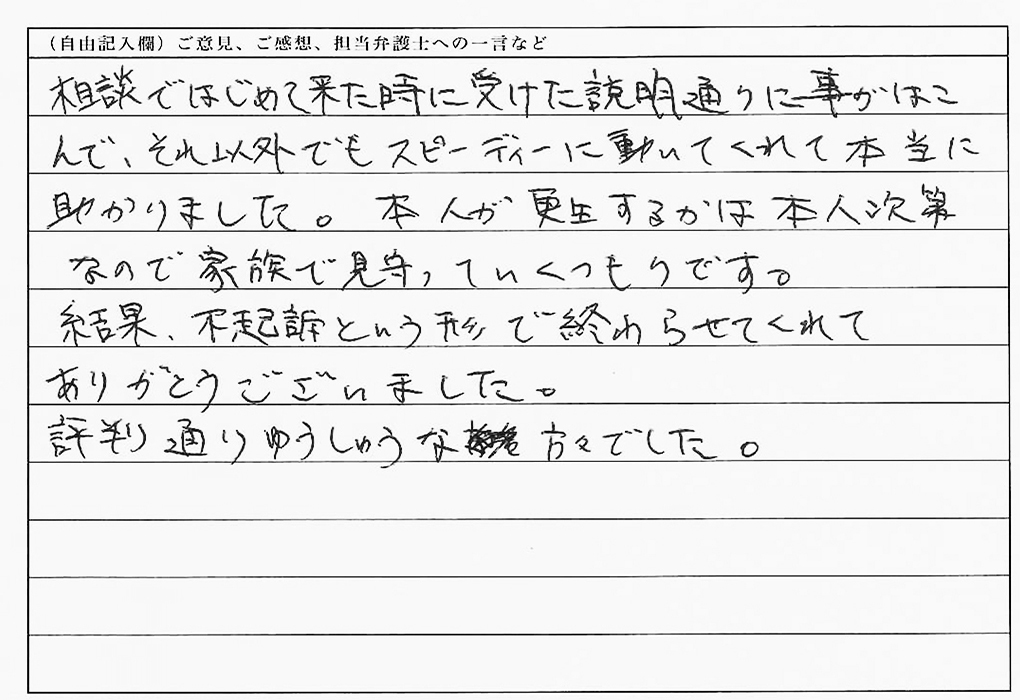 (自由記入欄)ご意見、ご感想、担当弁護士への一言など
相談ではじめて来た時に受けた説明通りに事がはこ
んで、それ以外でもスピーディーに動いてくれて本当に
助かりました。本人が更生するかは本人次第
なので家族で見守っていくつもりです。
結果、不起訴という形で終わらせてくれて
ありがとうございました。
評判通りゆうしゅうな方々でした。